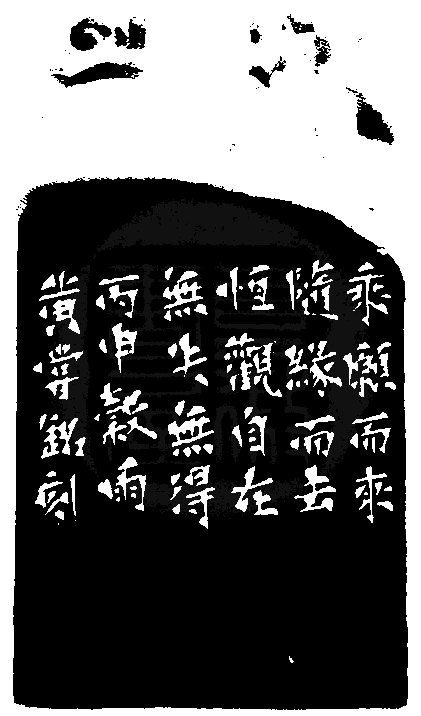 乘願而來
隨緣而去
恒觀自在
無失無得
丙申穀雨
黄嘗銘刻